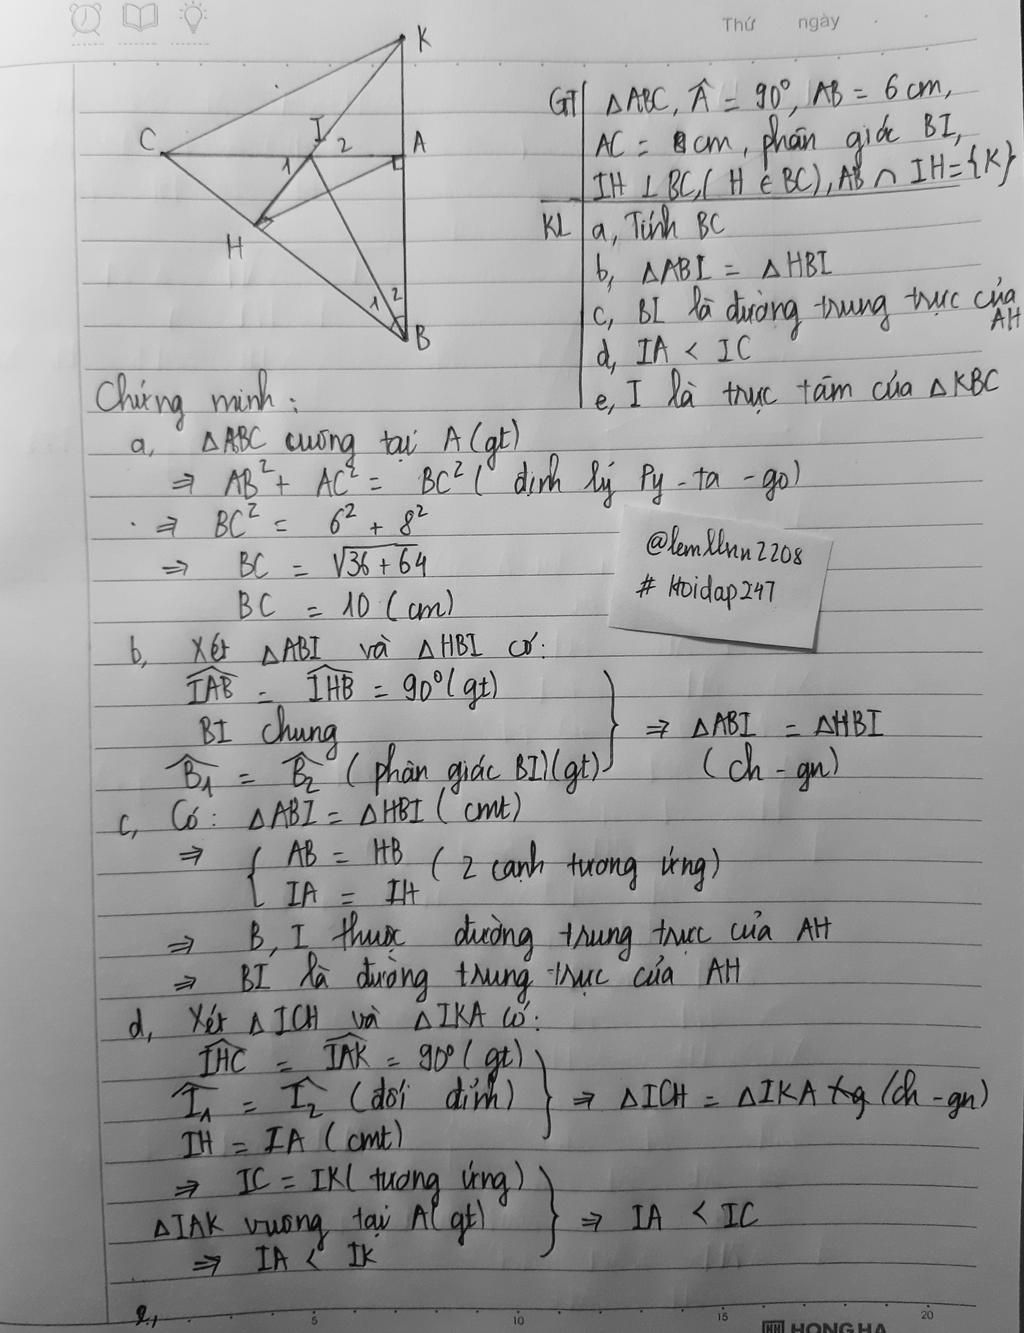 Thứ ngày
K
C
I
2
A
1
H
1
2
B
GT ΔABC, Â = 90°, AB = 6cm,
AC = 8cm, phân giác BI,
IH ⊥ BC, (H ∈ BC), AB ∩ IH = {K}
KL a, Tính BC
b, ΔABI = ΔHBI
c, BI là đường trung trực của
AH
d, IA < IC
e, I là trực tâm của ΔKBC
Chứng minh:
a, ΔABC vuông tại A (gt)
⇒ AB² + AC² = BC² (định lý Py-ta-go)
⇒ BC² = 6² + 8²
⇒ BC = √36+64
BC = 10 (cm)
@lemllnn2208
# Hoidap247
b, Xét ΔABI và ΔHBI có:
\widehat{IAB} = \widehat{IHB} = 90° (gt)
BI chung
\widehat{B₁} = \widehat{B₂} (phân giác BI)(gt)
} ⇒ ΔABI = ΔHBI
(ch - gn)
c, Có: ΔABI = ΔHBI (cmt)
⇒ { AB = HB (2 cạnh tương ứng)
IA = IH
⇒ B, I thuộc đường trung trực của AH
⇒ BI là đường trung trực của AH
d, Xét ΔICH và ΔIKA có:
\widehat{IHC} = \widehat{IAK} = 90° (gt)
\widehat{I₁} = \widehat{I₂} (đối đỉnh) } ⇒ ΔICH = ΔIKA (ch - gn)
IH = IA (cmt)
⇒ IC = IK (tương ứng)
ΔIAK vuông tại A (gt) } ⇒ IA < IC
⇒ IA < IK
e,
5 10 15 20
HH HONG HA